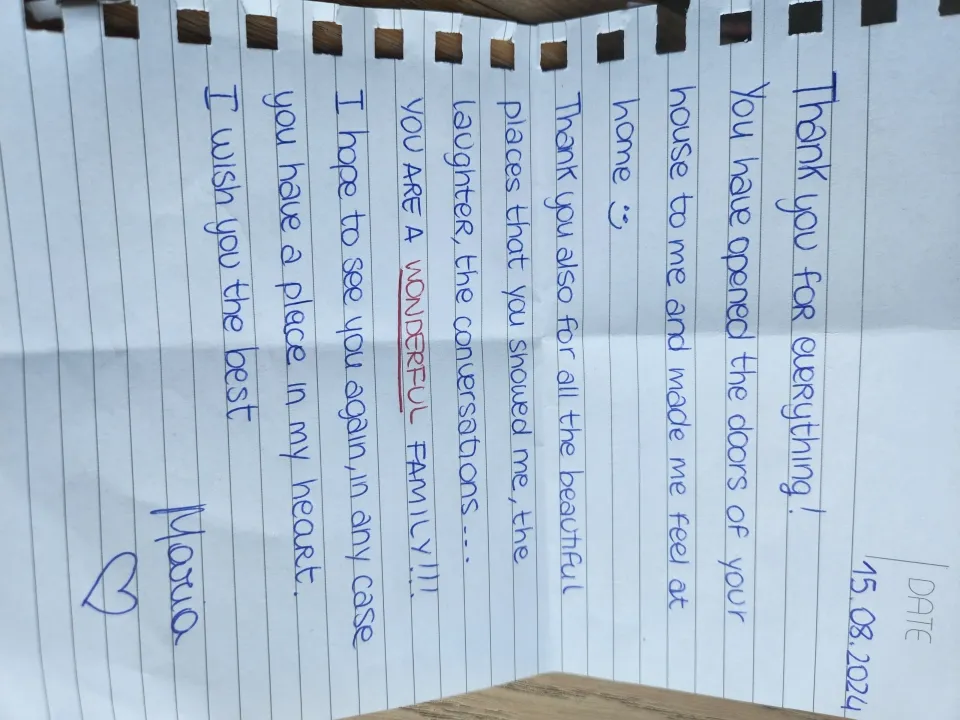 DATE
15.08.2024
Thank you for everything!
You have opened the doors of your
house to me and made me feel at
home :)
Thank you also for all the beautiful
places that you showed me, the
laughter, the conversations...
YOU ARE A WONDERFUL FAMILY!!!
I hope to see you again, in any case
you have a place in my heart.
I wish you the best
Maria